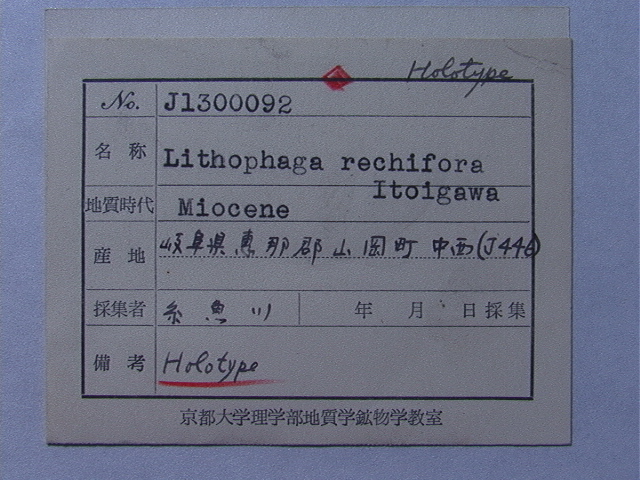 Holotype
No. J1300092
名称 Lithophaga rechifora
Itoigawa
地質時代 Miocene
産地 岐阜県恵那郡山岡町 中西(J446)
採集者 糸魚川 年 月 日採集
備考 Holotype
京都大学理学部地質学鉱物学教室